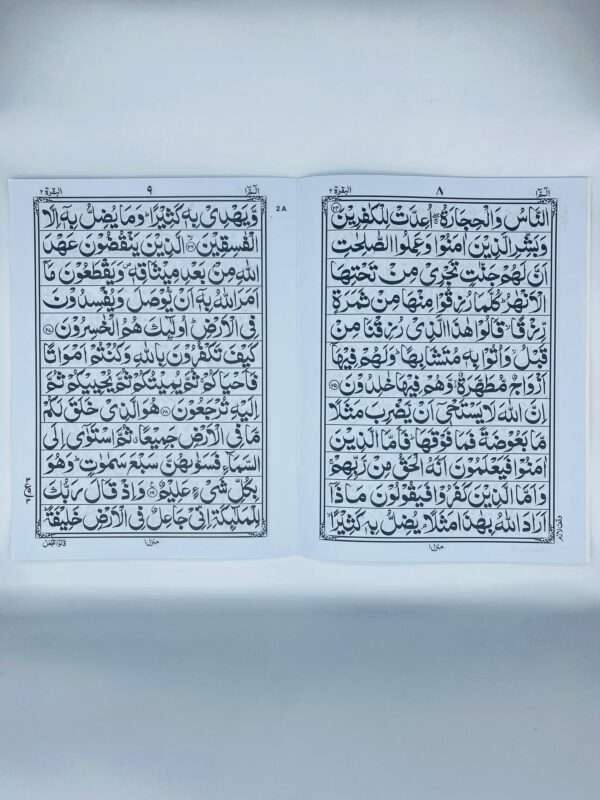 الٓمّٓ ١
٨
البقرة ٢
النَّاسُ وَالْحِجَارَةُ ۖۚ اُعِدَّتْ لِلْكٰفِرِيْنَ ﴿٢٤﴾
وَبَشِّرِ الَّذِيْنَ اٰمَنُوْا وَعَمِلُوا الصّٰلِحٰتِ
اَنَّ لَهُمْ جَنّٰتٍ تَجْرِيْ مِنْ تَحْتِهَا
الْاَنْهٰرُ ؕ كُلَّمَا رُزِقُوْا مِنْهَا مِنْ ثَمَرَةٍ
رِّزْقًا ۙ قَالُوْا هٰذَا الَّذِيْ رُزِقْنَا مِنْ
قَبْلُ ۙ وَاُتُوْا بِهٖ مُتَشَابِهًا ؕ وَلَهُمْ فِيْهَاۤ
اَزْوَاجٌ مُّطَهَّرَةٌ ۙ وَّهُمْ فِيْهَا خٰلِدُوْنَ ﴿٢٥﴾
اِنَّ اللّٰهَ لَا يَسْتَحْيٖۤ اَنْ يَّضْرِبَ مَثَلًا
مَّا بَعُوْضَةً فَمَا فَوْقَهَا ؕ فَاَمَّا الَّذِيْنَ
اٰمَنُوْا فَيَعْلَمُوْنَ اَنَّهُ الْحَقُّ مِنْ رَّبِّهِمْ ۚ
وَاَمَّا الَّذِيْنَ كَفَرُوْا فَيَقُوْلُوْنَ مَاذَاۤ
اَرَادَ اللّٰهُ بِهٰذَا مَثَلًا ۘ يُضِلُّ بِهٖ كَثِيْرًا ۙ
منزل ١
الٓمّٓ ١
٩
البقرة ٢
2 A
وَّيَهْدِيْ بِهٖ كَثِيْرًا ؕ وَمَا يُضِلُّ بِهٖۤ اِلَّا
الْفٰسِقِيْنَ ﴿٢٦﴾ الَّذِيْنَ يَنْقُضُوْنَ عَهْدَ
اللّٰهِ مِنْۢ بَعْدِ مِيْثَاقِهٖ ۪ وَيَقْطَعُوْنَ مَاۤ
اَمَرَ اللّٰهُ بِهٖۤ اَنْ يُّوْصَلَ وَيُفْسِدُوْنَ
فِي الْاَرْضِ ؕ اُولٰٓئِكَ هُمُ الْخٰسِرُوْنَ ﴿٢٧﴾
كَيْفَ تَكْفُرُوْنَ بِاللّٰهِ وَكُنْتُمْ اَمْوَاتًا
فَاَحْيَاكُمْ ۚ ثُمَّ يُمِيْتُكُمْ ثُمَّ يُحْيِيْكُمْ ثُمَّ
اِلَيْهِ تُرْجَعُوْنَ ﴿٢٨﴾ هُوَ الَّذِيْ خَلَقَ لَكُمْ
مَّا فِي الْاَرْضِ جَمِيْعًا ۗ ثُمَّ اسْتَوٰۤى اِلَى
السَّمَآءِ فَسَوّٰىهُنَّ سَبْعَ سَمٰوٰتٍ ؕ وَهُوَ
بِكُلِّ شَيْءٍ عَلِيْمٌ ﴿٢٩﴾ وَاِذْ قَالَ رَبُّكَ
لِلْمَلٰٓئِكَةِ اِنِّيْ جَاعِلٌ فِي الْاَرْضِ خَلِيْفَةً ؕ
منزل ١